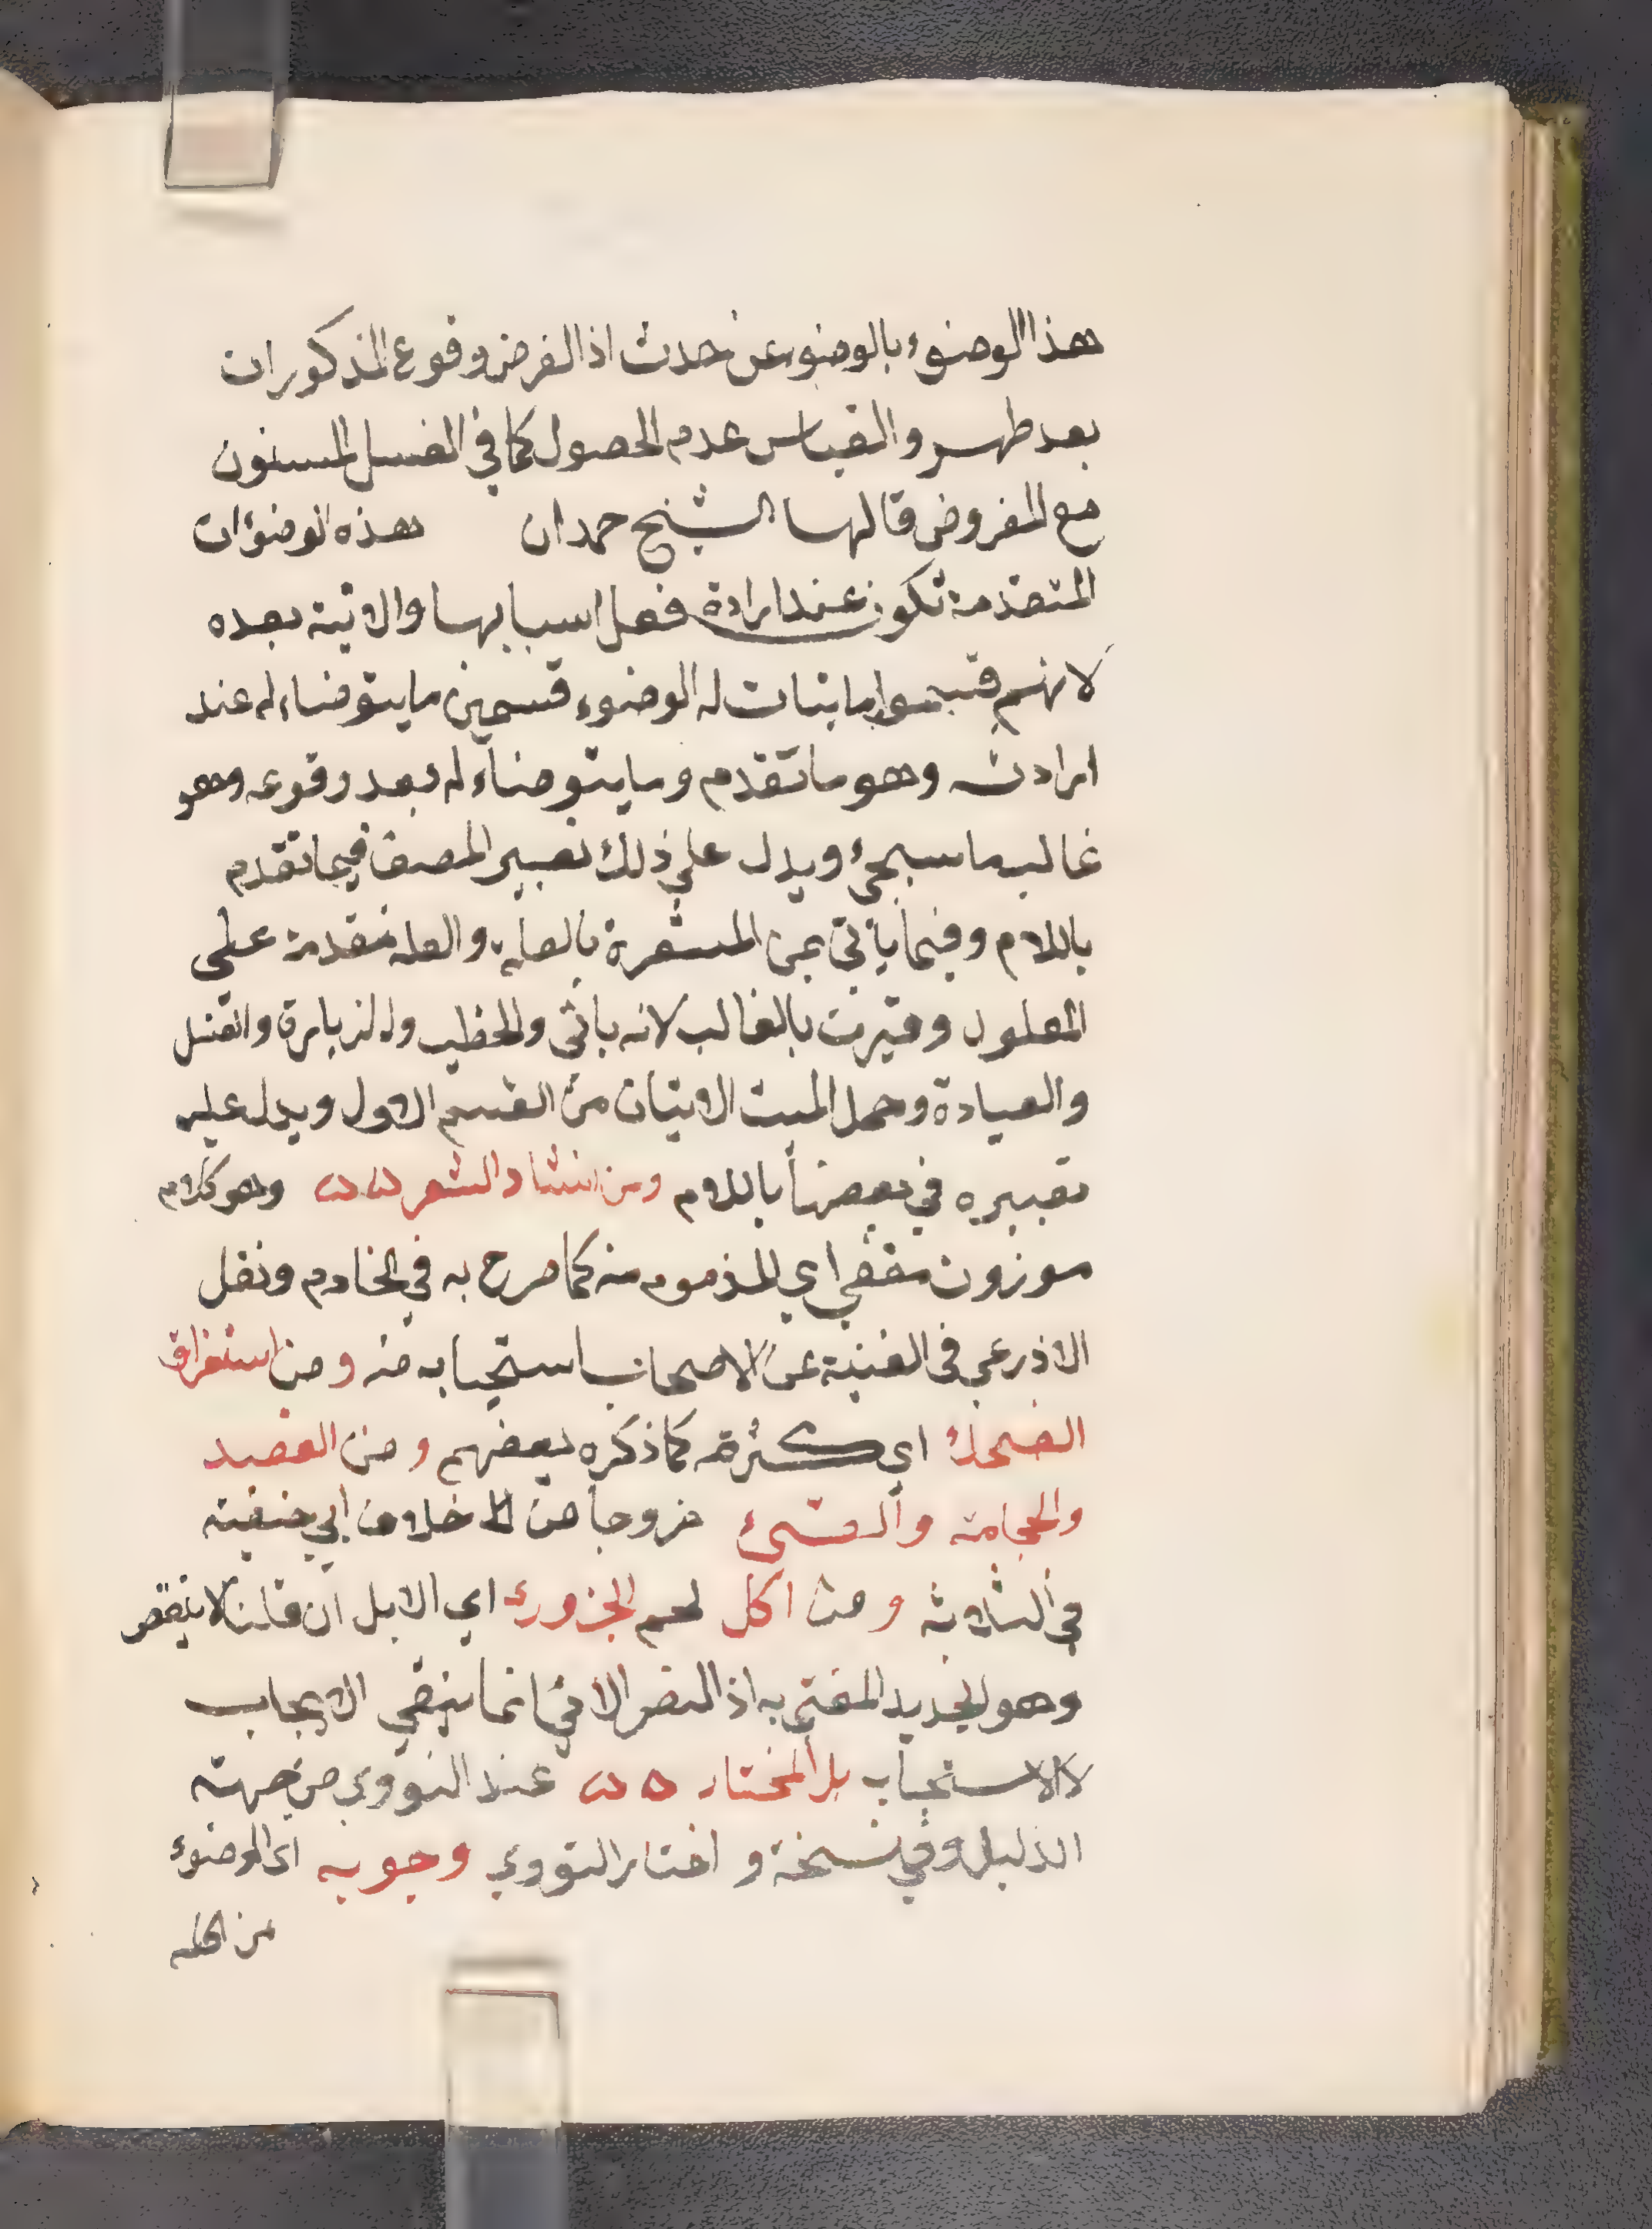 هذا الوضوء بالوضوء عن حدث اذا الفرض وقوع المذكورات
بعد طهر والقياس عدم الحصول كما في الغسل المسنون
مع المفروض قالها الشيخ حمدان هذه الوضوءات
المتقدمة تكون عند ارادة فعل اسبابها والاتية بعده
لانهم قسموا ما يتات له الوضوء قسمين ما يتوضاء له عند
ارادته وهو ما تقدم وما يتوضاء له بعد وقوعه وهو
غالب ما سيجئ ويدل علي ذلك تعبير المصنف فيما تقدم
باللام وفيما ياتي بمن المشعرة بالعلية والعلة متقدمة علي
المعلول وقيدت بالغالب لانه ياتي وللخطيب وللزيارة والغسل
والعيادة وحمل الميت الاتيان من القسم الاول ويدل عليه
تعبيره في بعضها باللام ومن انشاد الشعر وهو كلام
موزون مقفي اي المذموم منه كما صرح به في الخادم ونقل
الاذرعي في الغنية عن الاصحاب استحبابه منه ومن استغراق
الضحك اي كثرته كما ذكره بعضهم ومن الفصد
والحجامة والقئ خروجا من خلاف ابي حنيفة
في الثلاثة ومن اكل لحم الجزور اي الابل ان قلنا لا ينقض
وهو الجديد المفتي به اذ النص الاتي انما ينفي الايجاب
لا الاستحباب بل المختار عند النووي من جهة
الدليل وفي نسخة و اختار النووي وجوبه اي الوضوء
من اكله